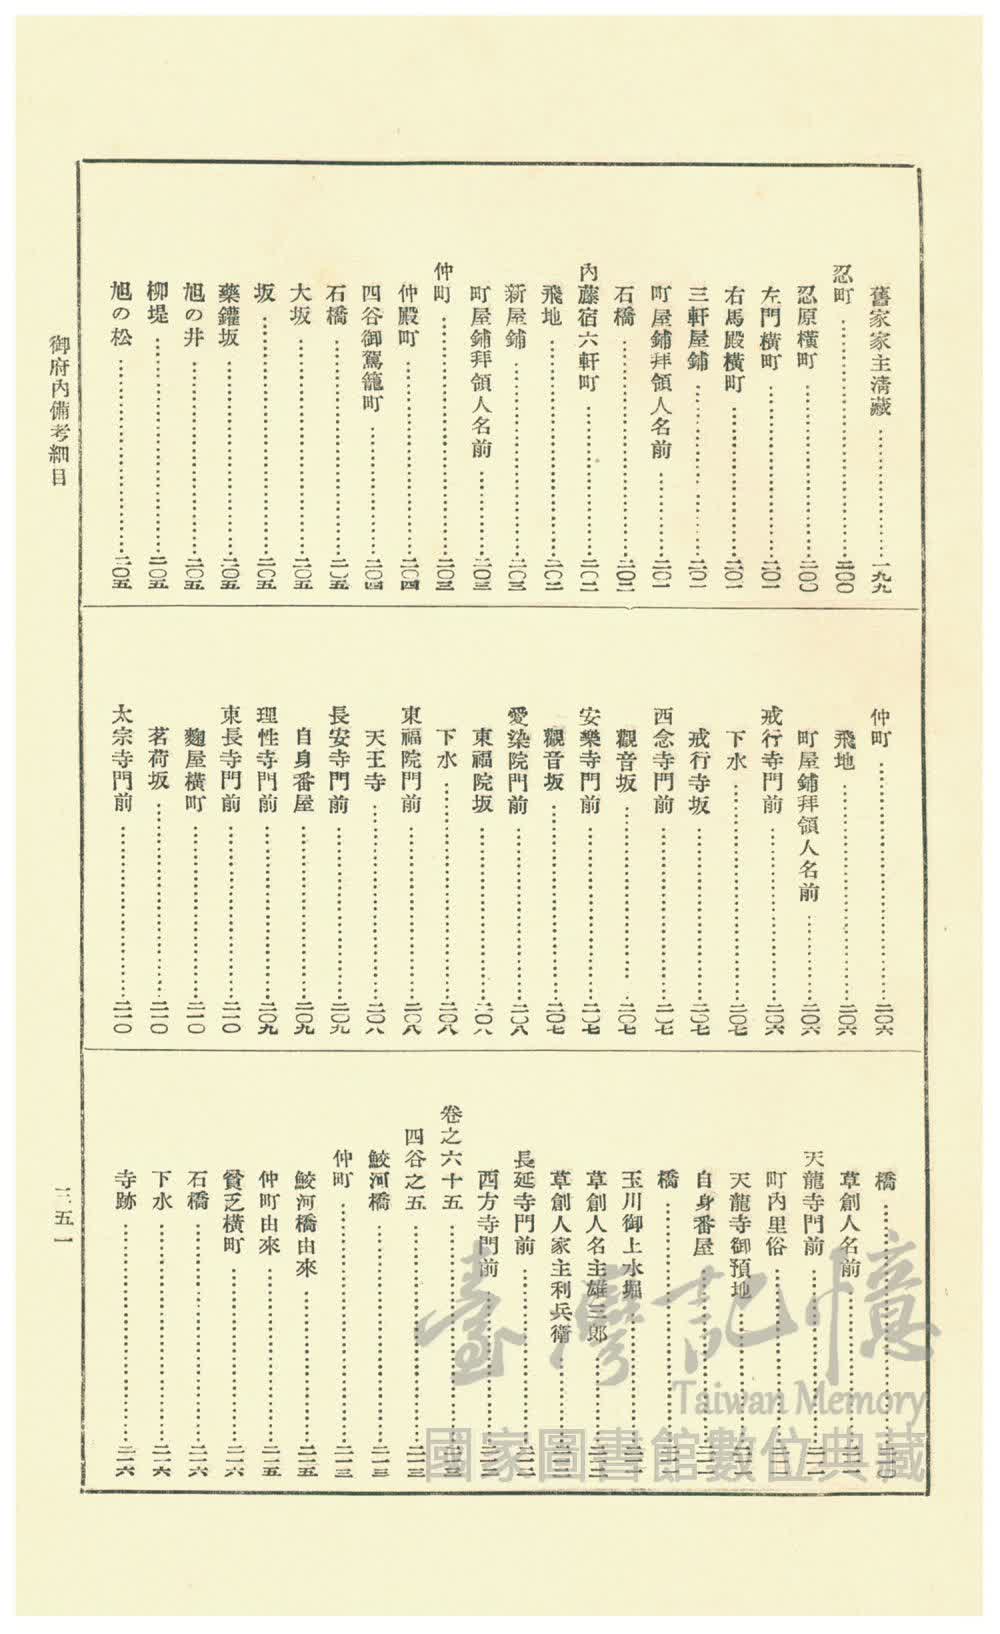 舊家家主清藏…………一九九
忍町…………二〇〇
忍原橫町…………二〇〇
左門橫町…………二〇一
右馬殿橫町…………二〇一
三軒屋鋪…………二〇一
町屋鋪拜領人名前…………二〇一
石橋…………二〇二
內藤宿六軒町…………二〇二
飛地…………二〇二
新屋鋪…………二〇三
町屋鋪拜領人名前…………二〇三
仲町…………二〇三
仲殿町…………二〇四
四谷御駕籠町…………二〇四
石橋…………二〇五
大坂…………二〇五
坂…………二〇五
藥鑵坂…………二〇五
旭の井…………二〇五
柳堤…………二〇五
旭の松…………二〇五
仲町…………二〇六
飛地…………二〇六
町屋鋪拜領人名前…………二〇六
戒行寺門前…………二〇六
下水…………二〇七
戒行寺坂…………二〇七
西念寺門前…………二〇七
觀音坂…………二〇七
安樂寺門前…………二〇七
觀音坂…………二〇七
愛染院門前…………二〇八
東福院坂…………二〇八
下水…………二〇八
東福院門前…………二〇八
天王寺…………二〇八
長安寺門前…………二〇九
自身番屋…………二〇九
理性寺門前…………二〇九
東長寺門前…………二一〇
麴屋橫町…………二一〇
茗荷坂…………二一〇
太宗寺門前…………二一〇
橋…………
草創人名前…………
天龍寺門前…………
町內里俗…………
天龍寺御預地…………
自身番屋…………
橋…………
玉川御上水堀…………
草創人名主雄三郎…………
草創人家主利兵衞…………
長延寺門前…………
西方寺門前…………
卷之六十五…………
四谷之五…………二一三
鮫河橋…………二一三
仲町…………二一三
鮫河橋由來…………二一五
仲町由來…………二一五
貧乏橫町…………二一六
石橋…………二一六
下水…………二一六
寺跡…………二一六
御府內備考細目
三五一
臺灣記憶
Taiwan Memory
國家圖書館數位典藏